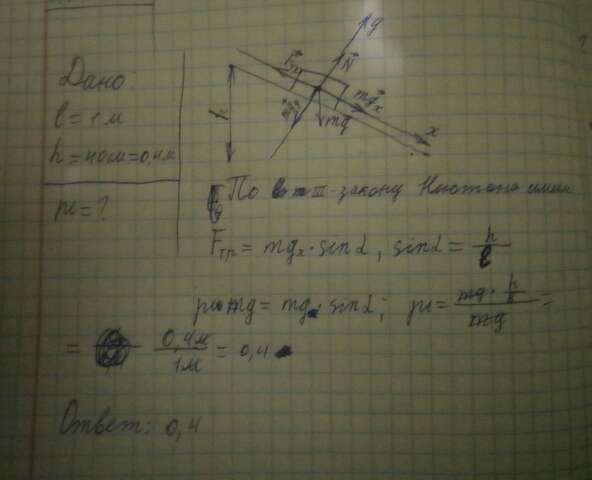 Дано:
l = 1 м
h = 40см = 0,4м
μ = ?
y
N
Fтр
mgx
mg
h
x
По III-закону Ньютона имеем
Fтр = mgx · sinα, sinα = h/l
μ mg = mg · sinα; μ = mg · h/l / mg =
= 0,4м/1м = 0,4
Ответ: 0,4